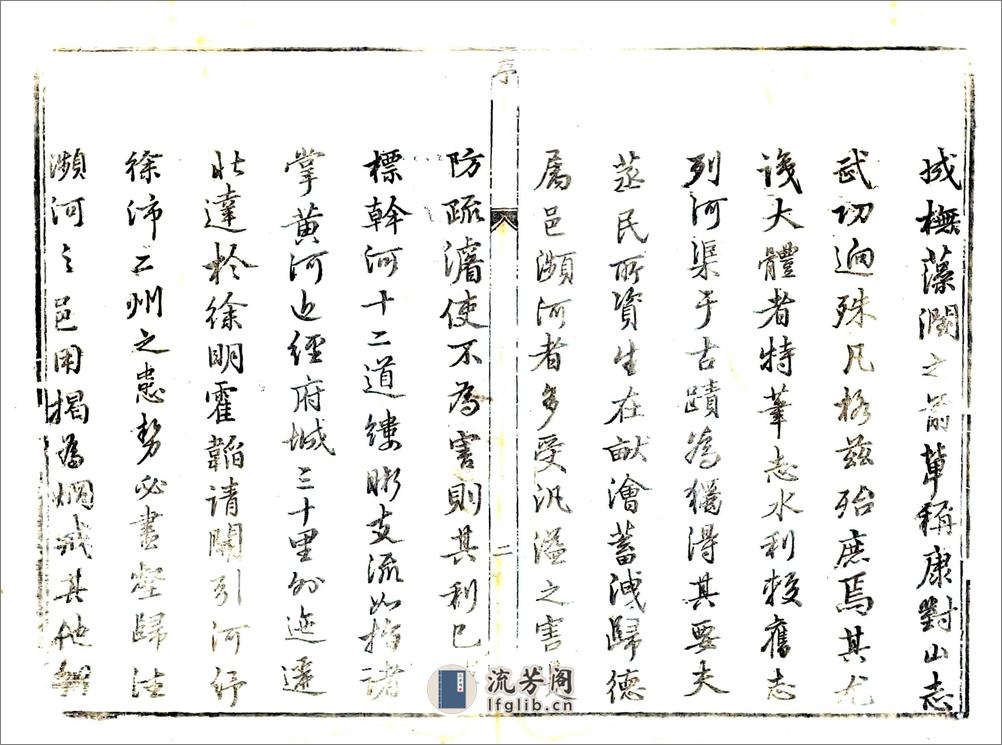 成撫藻潤之前輩稱康對山志
武功迥殊凡格茲殆庶焉其尤
識大體者特筆志水利較舊志
列河渠于古蹟為獨得其要夫
蒸民所資生在畎澮蓄洩歸德
屬邑瀕河者多受汎溢之害
防疏瀦使不為害則其利已
標幹河十二道縷晰支流如指諸
掌黃河迆經府城三十里外迤邐
北達於徐明霍韜請開引河紓
徐沛二州之患勢必盡壑歸注
瀕河之邑用揭為炯戒其他
序
二
流芳阁
lfglib.cn